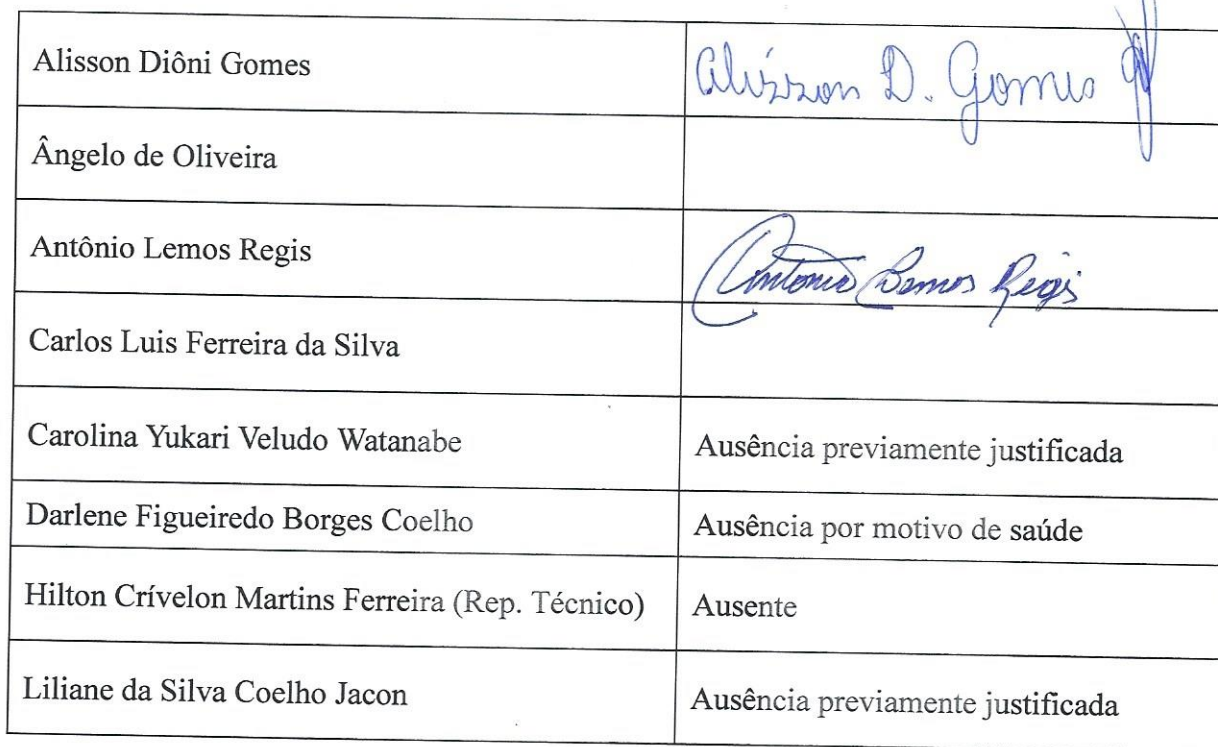 Alisson Diôni Gomes
Alisson D. Gomes
Ângelo de Oliveira
Antônio Lemos Regis
Antonio Lemos Regis
Carlos Luis Ferreira da Silva
Carolina Yukari Veludo Watanabe
Ausência previamente justificada
Darlene Figueiredo Borges Coelho
Ausência por motivo de saúde
Hilton Crívelon Martins Ferreira (Rep. Técnico)
Ausente
Liliane da Silva Coelho Jacon
Ausência previamente justificada